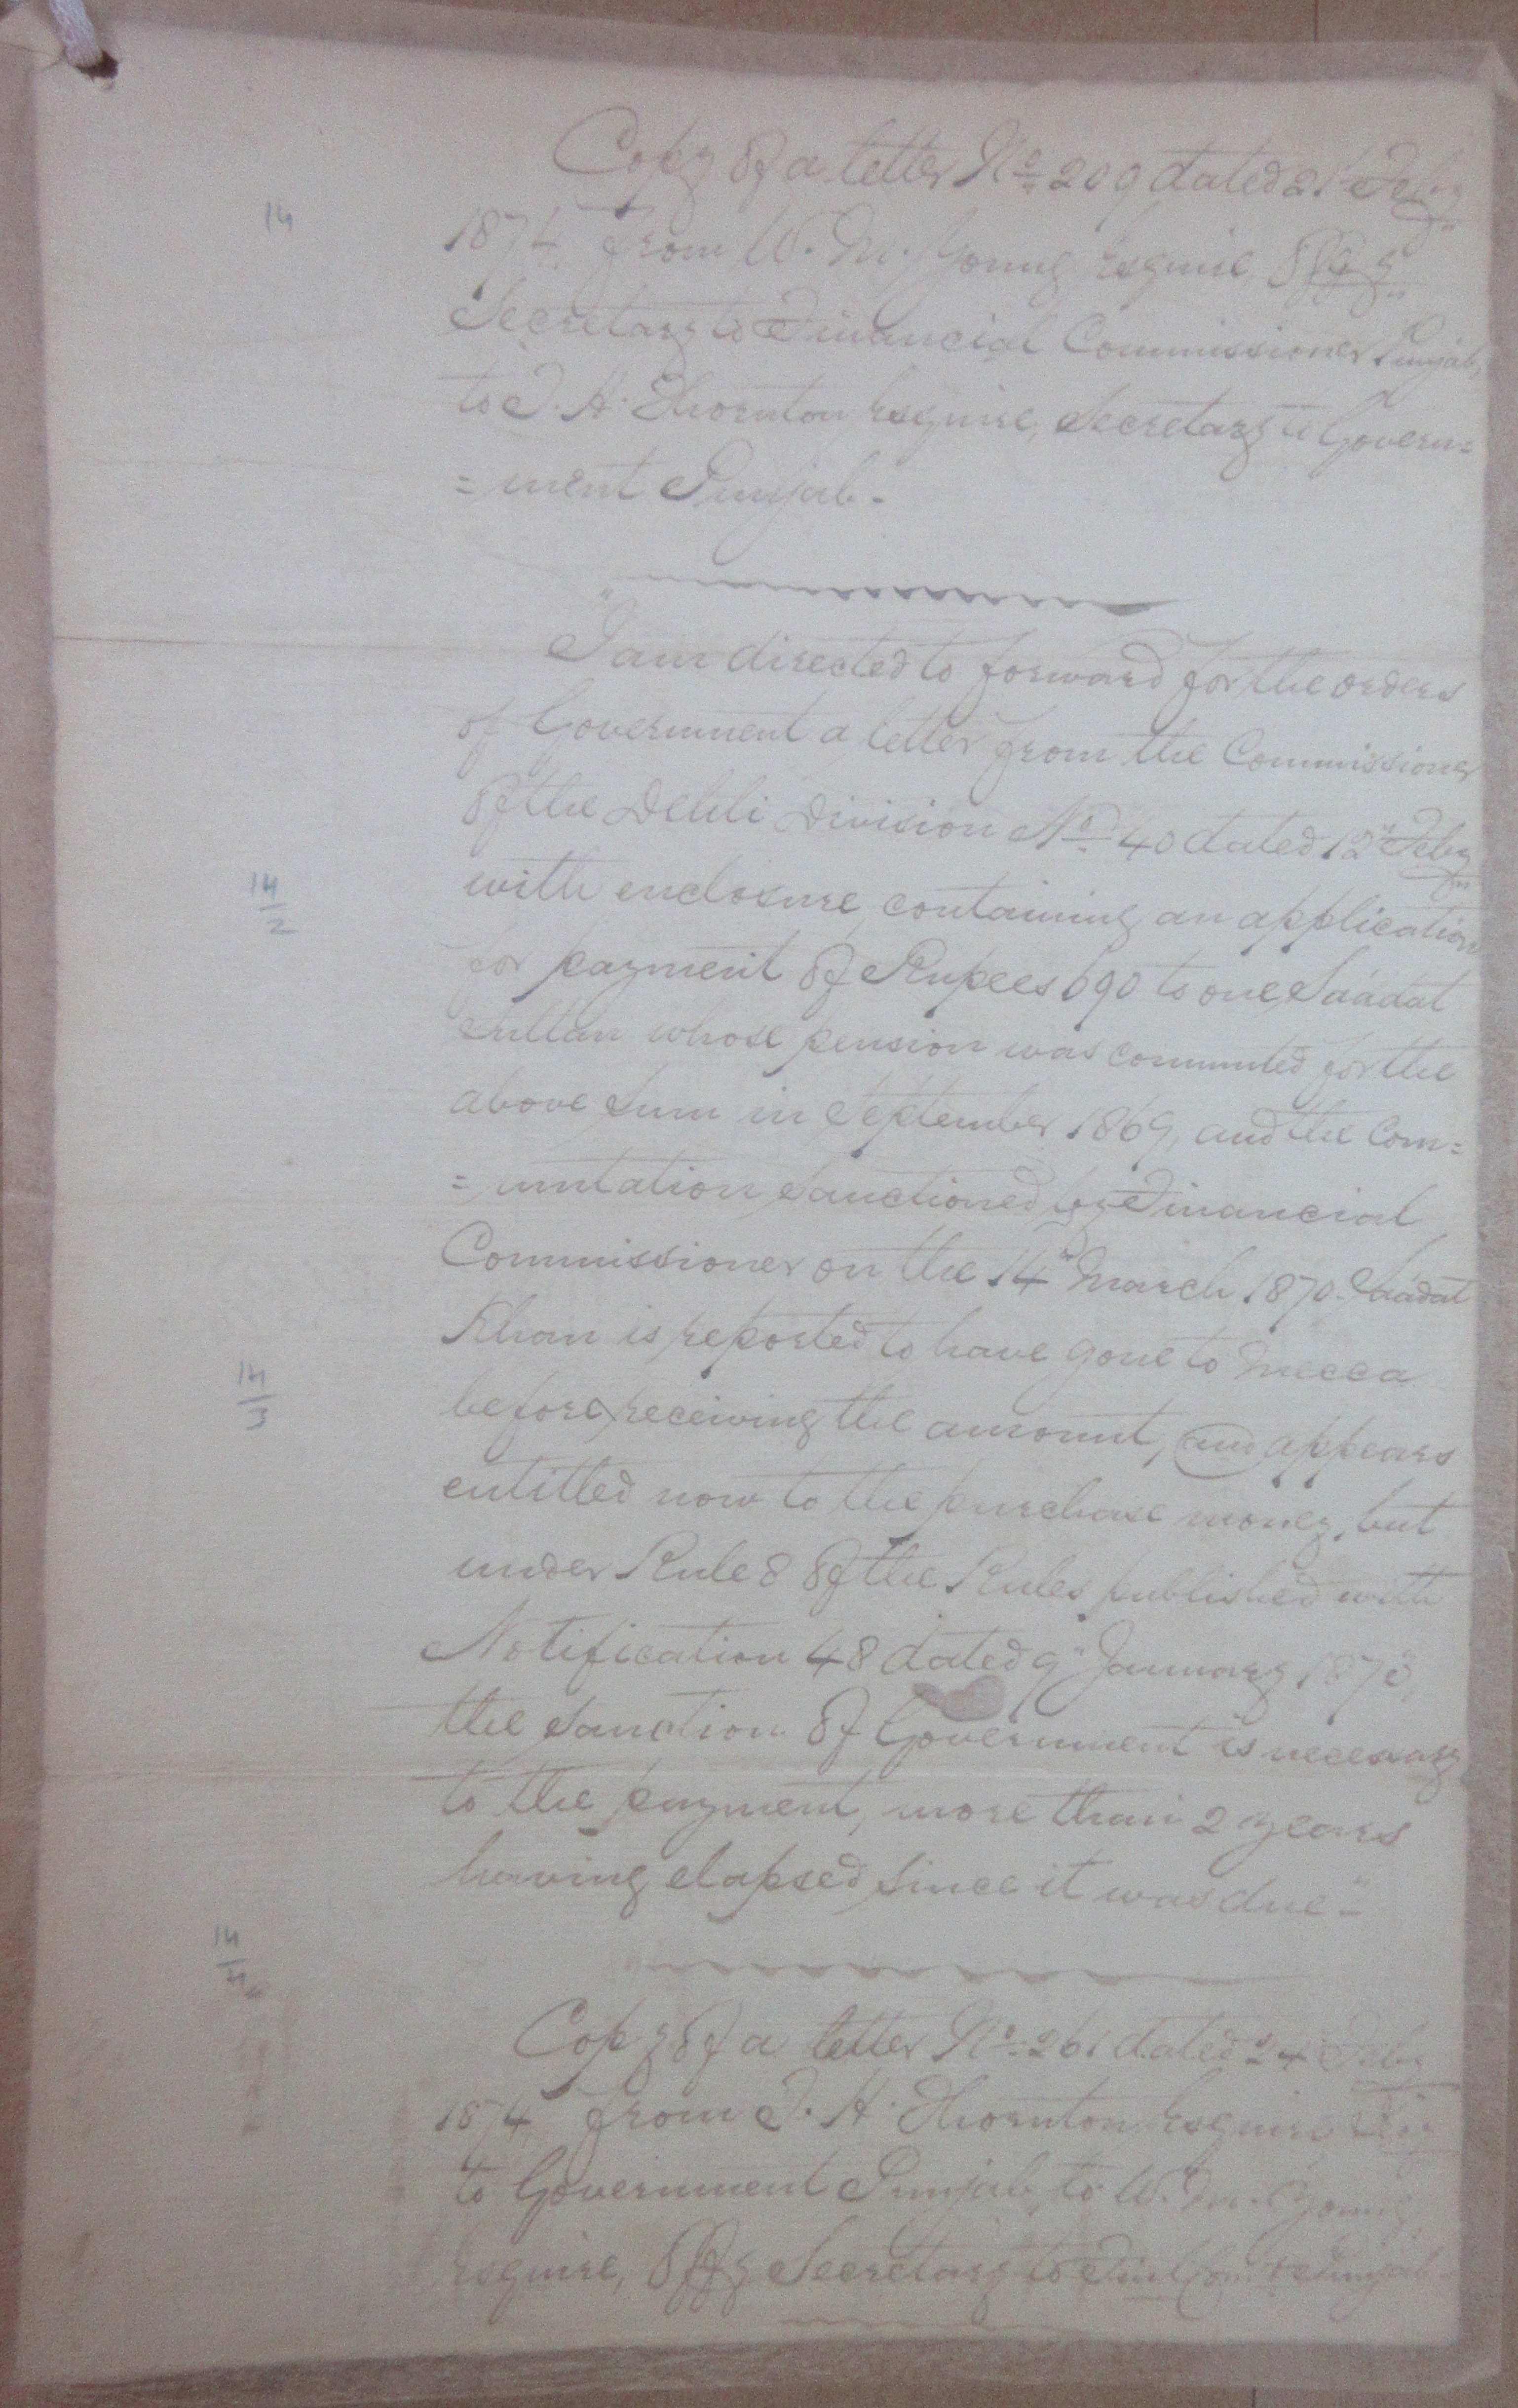 Copy of a letter No 209 dated 21st Feby
14
1874, from W. M. Young Esquire, Offg
Secretary to Financial Commissioner Punjab,
to T. H. Thornton Esquire, Secretary to Govern=
=ment Punjab.
"I am directed to forward for the orders
of Government a letter from the Commissioner
of the Dehli Division No 40 dated 12" Feby
14/2
with enclosure, containing an application
for payment of Rupees 690 to one, Sáádat
Sultan whose pension was commuted for the
above sum in September 1869, and the Com=
=mutation sanctioned by Financial
Commissioner on the 14th March 1870. Sáádat
Khan is reported to have gone to Mecca
14/3
before receiving the amount, and appears
entitled now to the purchase money, but
under Rule 8 of the Rules published with
Notification 48 dated 9" January 1873,
the sanction of Government is necessary
to the payment, more than 2 years
having elapsed since it was due."
14/4
Copy of a letter No 261 dated 24 Feby
1874, from T. H. Thornton Esquire,
to Government Punjab, to W. M. Young
Esquire, Offg Secretary to Finl Comr Punjab.